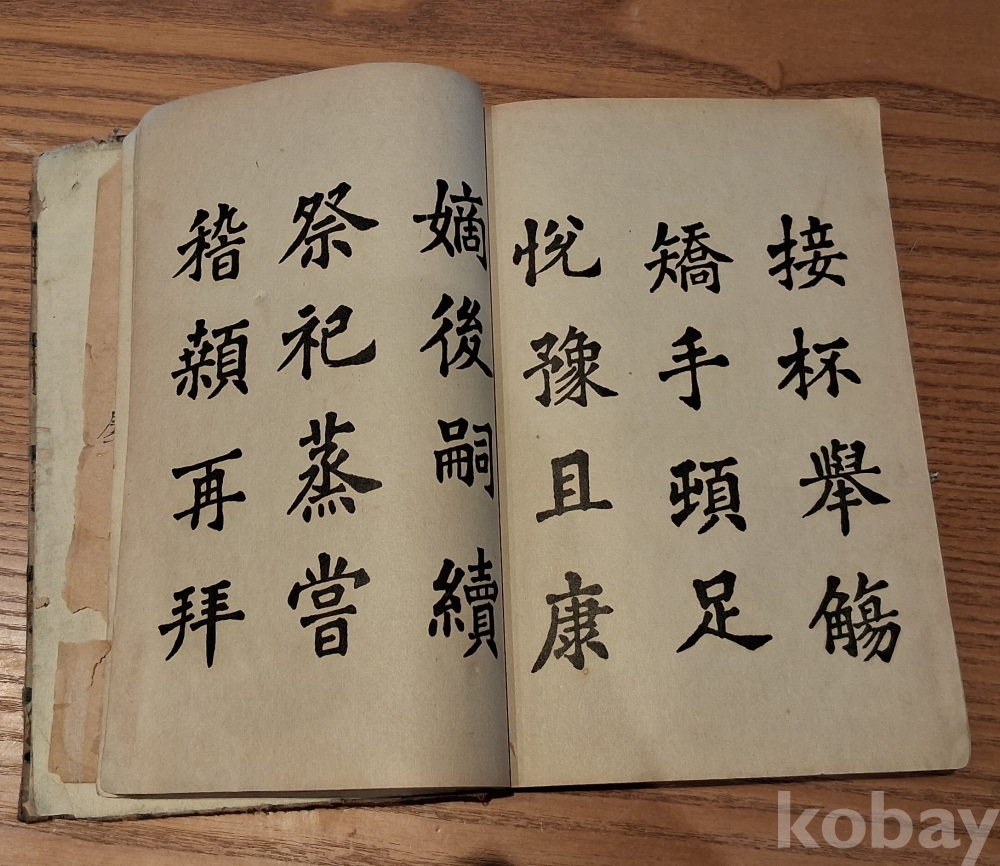 接杯舉觴
矯手頓足
悅豫且康
嫡後嗣續
祭祀蒸嘗
稽顙再拜
kobay